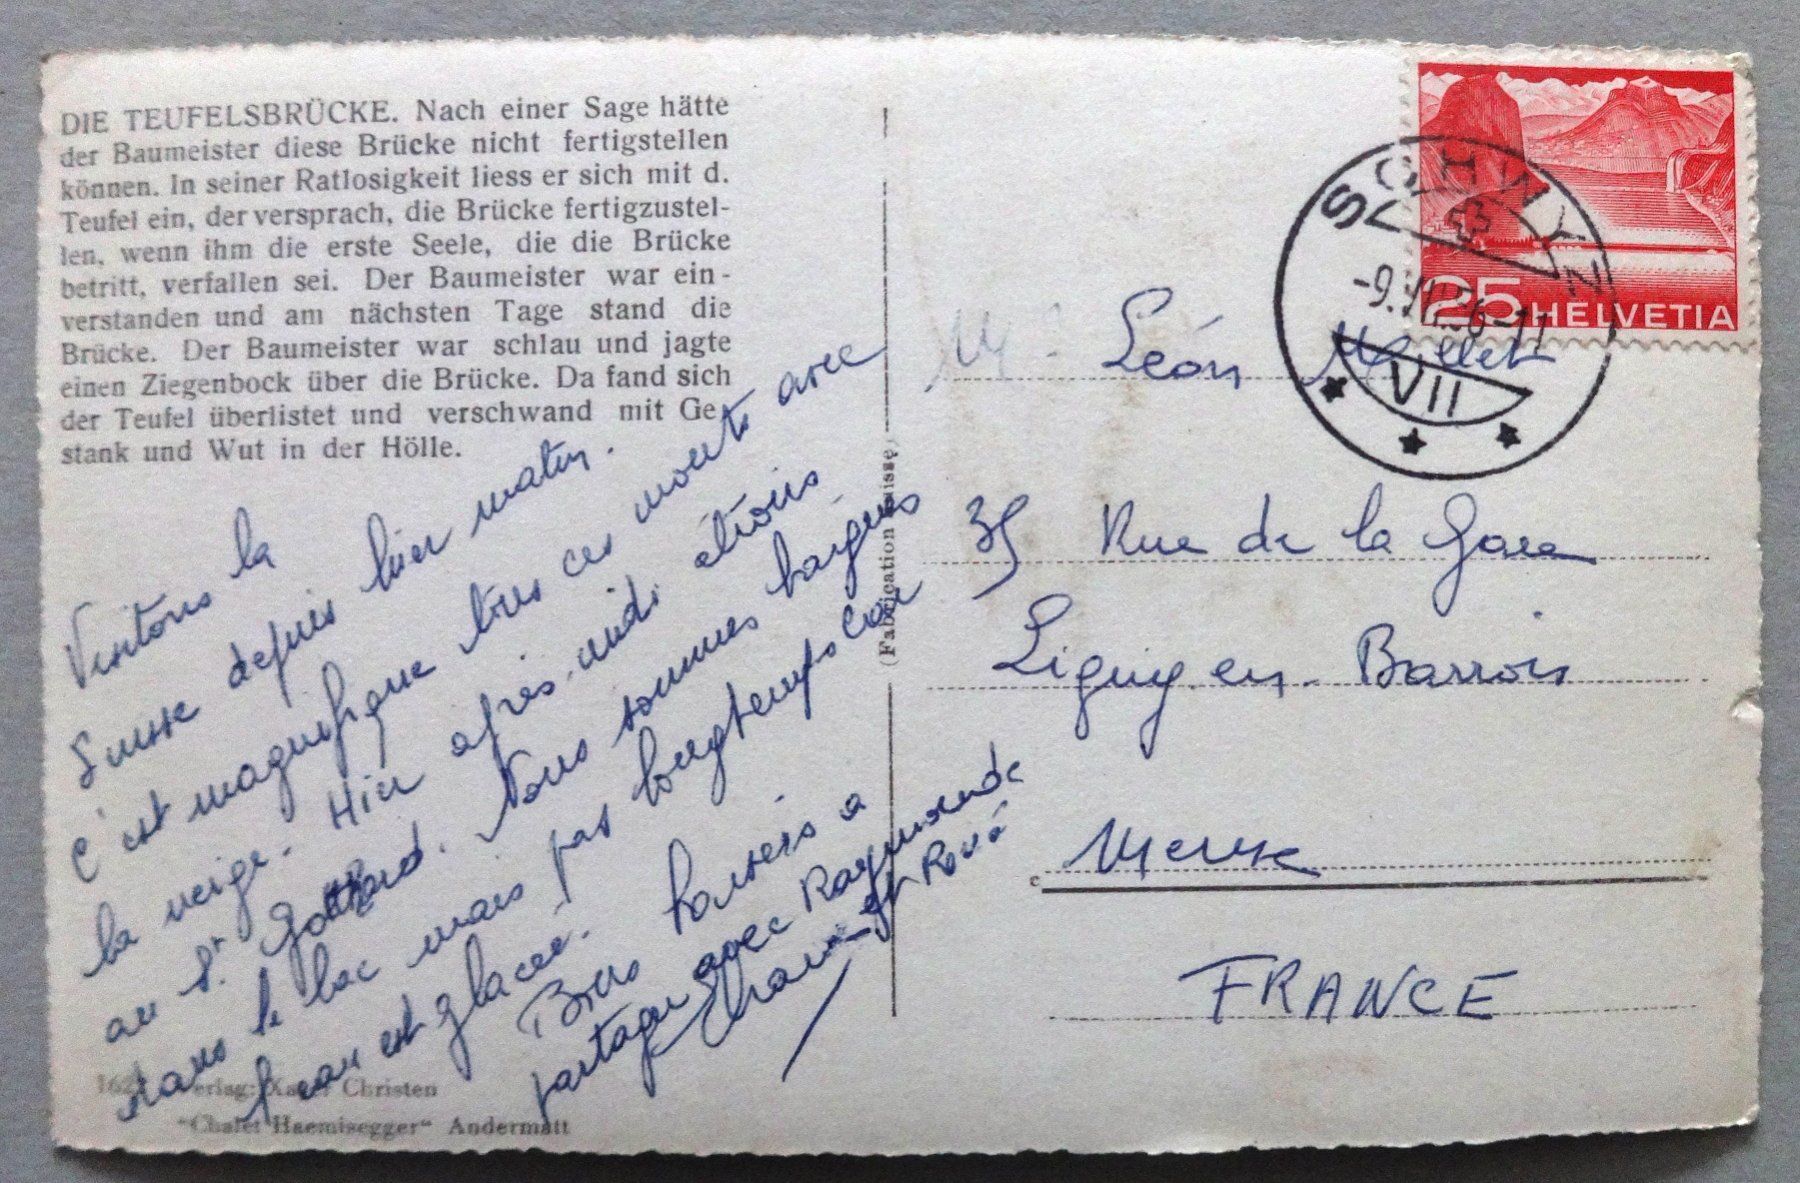 DIE TEUFELSBRÜCKE. Nach einer Sage hätte
der Baumeister diese Brücke nicht fertigstellen
können. In seiner Ratlosigkeit liess er sich mit d.
Teufel ein, der versprach, die Brücke fertigzustel-
len, wenn ihm die erste Seele, die die Brücke
betritt, verfallen sei. Der Baumeister war ein-
verstanden und am nächsten Tage stand die
Brücke. Der Baumeister war schlau und jagte
einen Ziegenbock über die Brücke. Da fand sich
der Teufel überlistet und verschwand mit Ge-
stank und Wut in der Hölle.
Visitons la
Suisse depuis hier matin.
C'est magnifique tous ces monts avec
la neige. Hier après-midi étions
au St Gotthard. Nous sommes baignés
dans le lac mais pas longtemps car
l'eau est glacée.
Bons baisers à
partager avec Raymonde
et René
Verlag: Xaver Christen
"Chalet Haemisegger" Andermatt
(Fabrication suisse)
SCHWYZ
-9.VII.56-11
VII
25 HELVETIA
Mr Léon
35 Rue de la Gare
Ligny en Barrois
Meuse
FRANCE